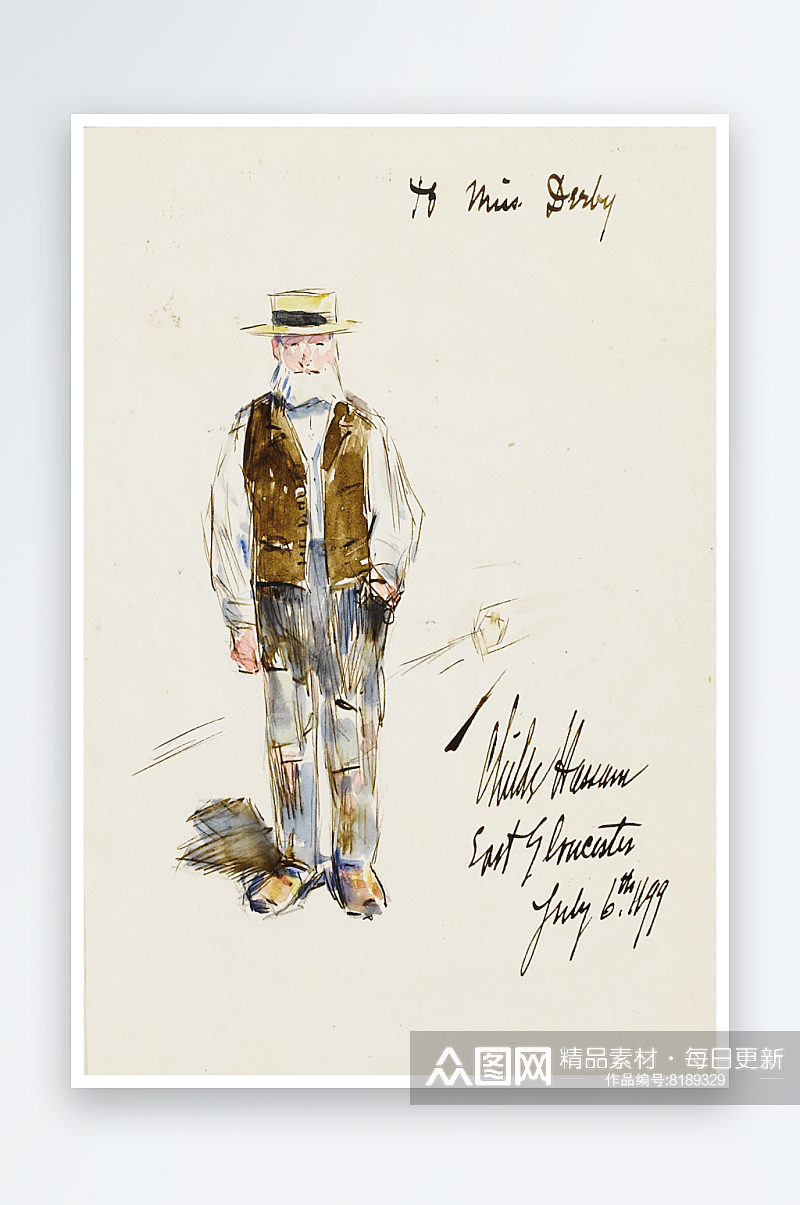 To Miss Derby
Childe Hassam
East Gloucester
July 6.th 1899
众图网
精品素材·每日更新
作品编号:8189329